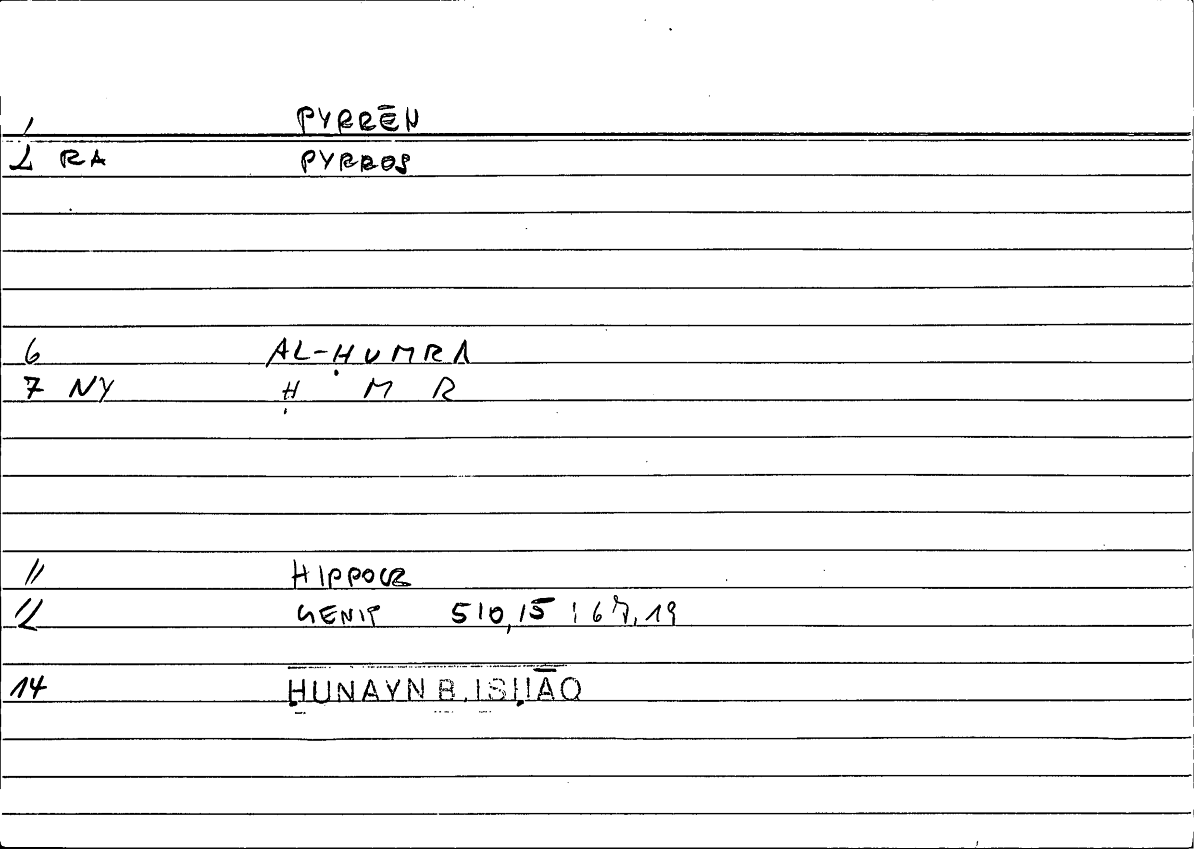 1 PYRRĒN
2 RA PYRROS
6 AL-ḤUMRA
7 NY Ḥ M R
11 HIPPOCR
12 GENIT 510,15 ; 67,19
14 ḤUNAYN B. ISḤĀQ